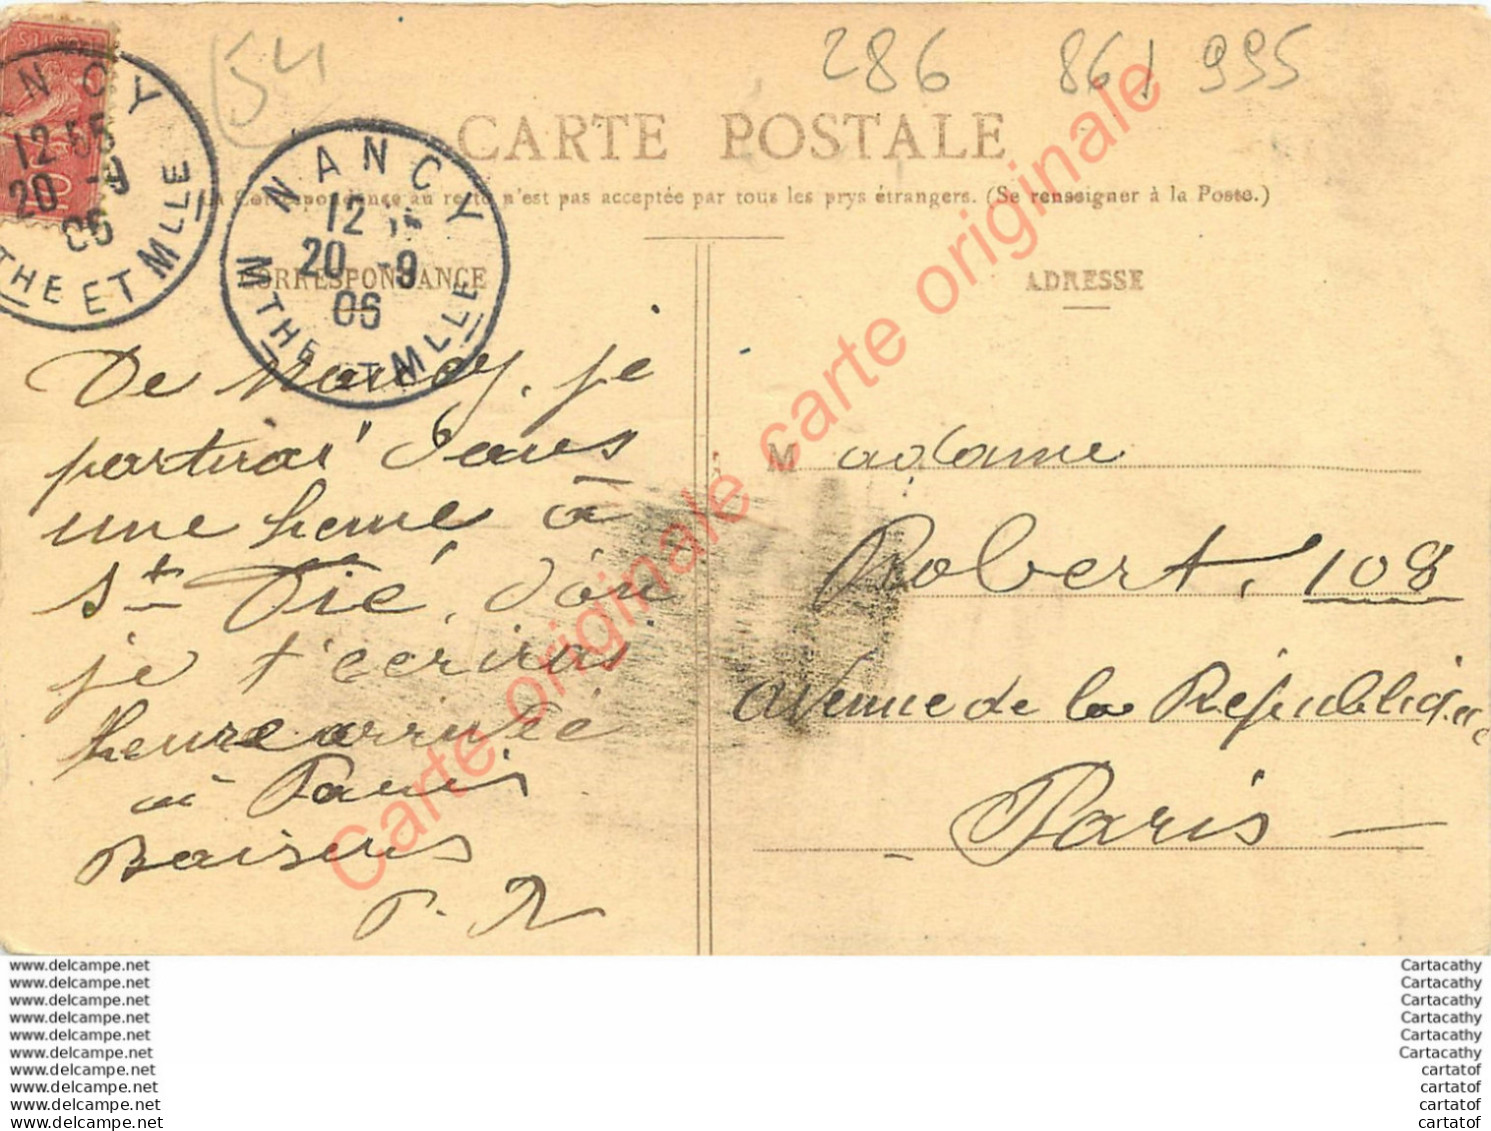 54
286 861 995
CARTE POSTALE
La Correspondance au recto n'est pas acceptée par tous les prys étrangers. (Se renseigner à la Poste.)
NANCY
12 55
20 -9
06
MTHE ET MLLE
NANCY
12
20 -9
06
MTHE ET MLLE
CORRESPONDANCE
De Nancy, je
partirai dans
une heure à
St Dié, d'où
je t'écrirai
heure arrivée
à Paris
Baisers
P. R
ADRESSE
Madame
Robert, 108
avenue de la République
Paris —
Carte originale carte originale carte originale
www.delcampe.net
www.delcampe.net
www.delcampe.net
www.delcampe.net
www.delcampe.net
www.delcampe.net
www.delcampe.net
www.delcampe.net
www.delcampe.net
www.delcampe.net
Cartacathy
Cartacathy
Cartacathy
Cartacathy
Cartacathy
Cartacathy
cartatof
cartatof
cartatof
cartatof